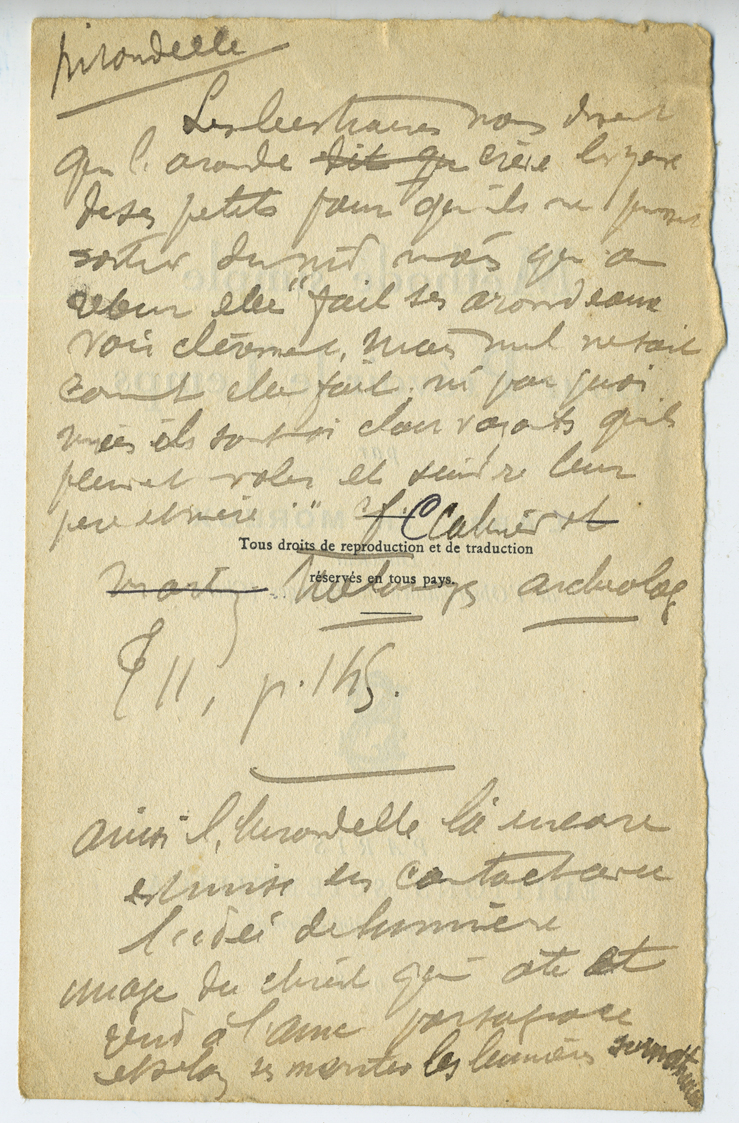 hirondelle
Les bestiaires nous disent
que l'aronde dit que crève les yeux
de ses petits pour qu'ils ne puissent
sortir du nid mais qu'au
retour elle "fait ses arondeaux
voir clèrement, mais nul ne sait
comment elle fait, ni par quoi
mès ils sont si clair voyants qu'ils
peuvent voler et suivre leur
père et mère." cf. C Cahier et
Tous droits de reproduction et de traduction
réservés en tous pays.
Martin Mélanges archeolog
T II, p. 145.
ainsi l'hirondelle là encore
est mise en contact avec
l'idée de lumière
image du christ qui ôte et
rend à l'âme par sa grace
et selon ses mérites les lumières surnaturelles